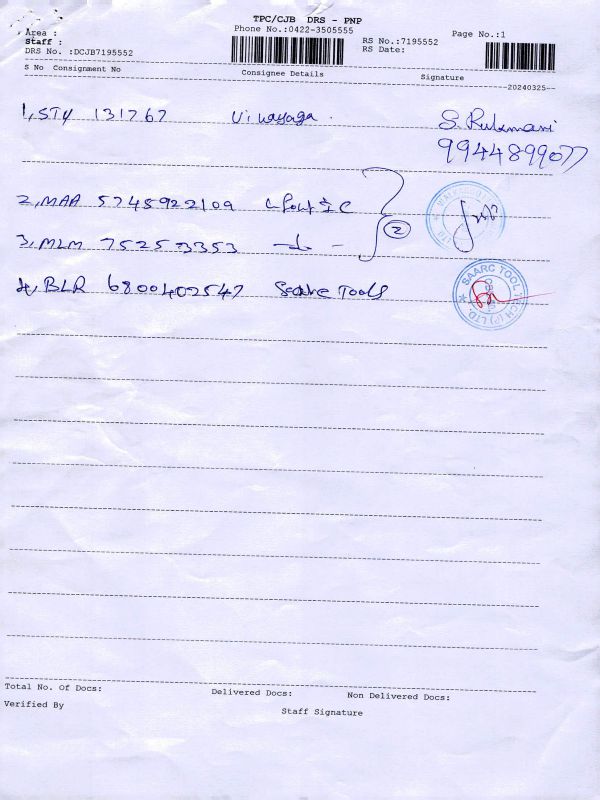 TPC/CJB DRS - PNP
Area :
Phone No.:0422-3505555
Staff :
RS No.:7195552
Page No.:1
DRS No. :DCJB7195552
RS Date:
S No Consignment No
Consignee Details
Signature
20240325
1, STY 131767 Vinayaga.
S. Rukmani
9944899077
2, MAA 5745922109
3, MLM 75253353
2
4, BLR 6800402547 Saarc Tools
SAARC TOOL TECH (P) LTD.
Total No. Of Docs:
Delivered Docs:
Non Delivered Docs:
Verified By
Staff Signature